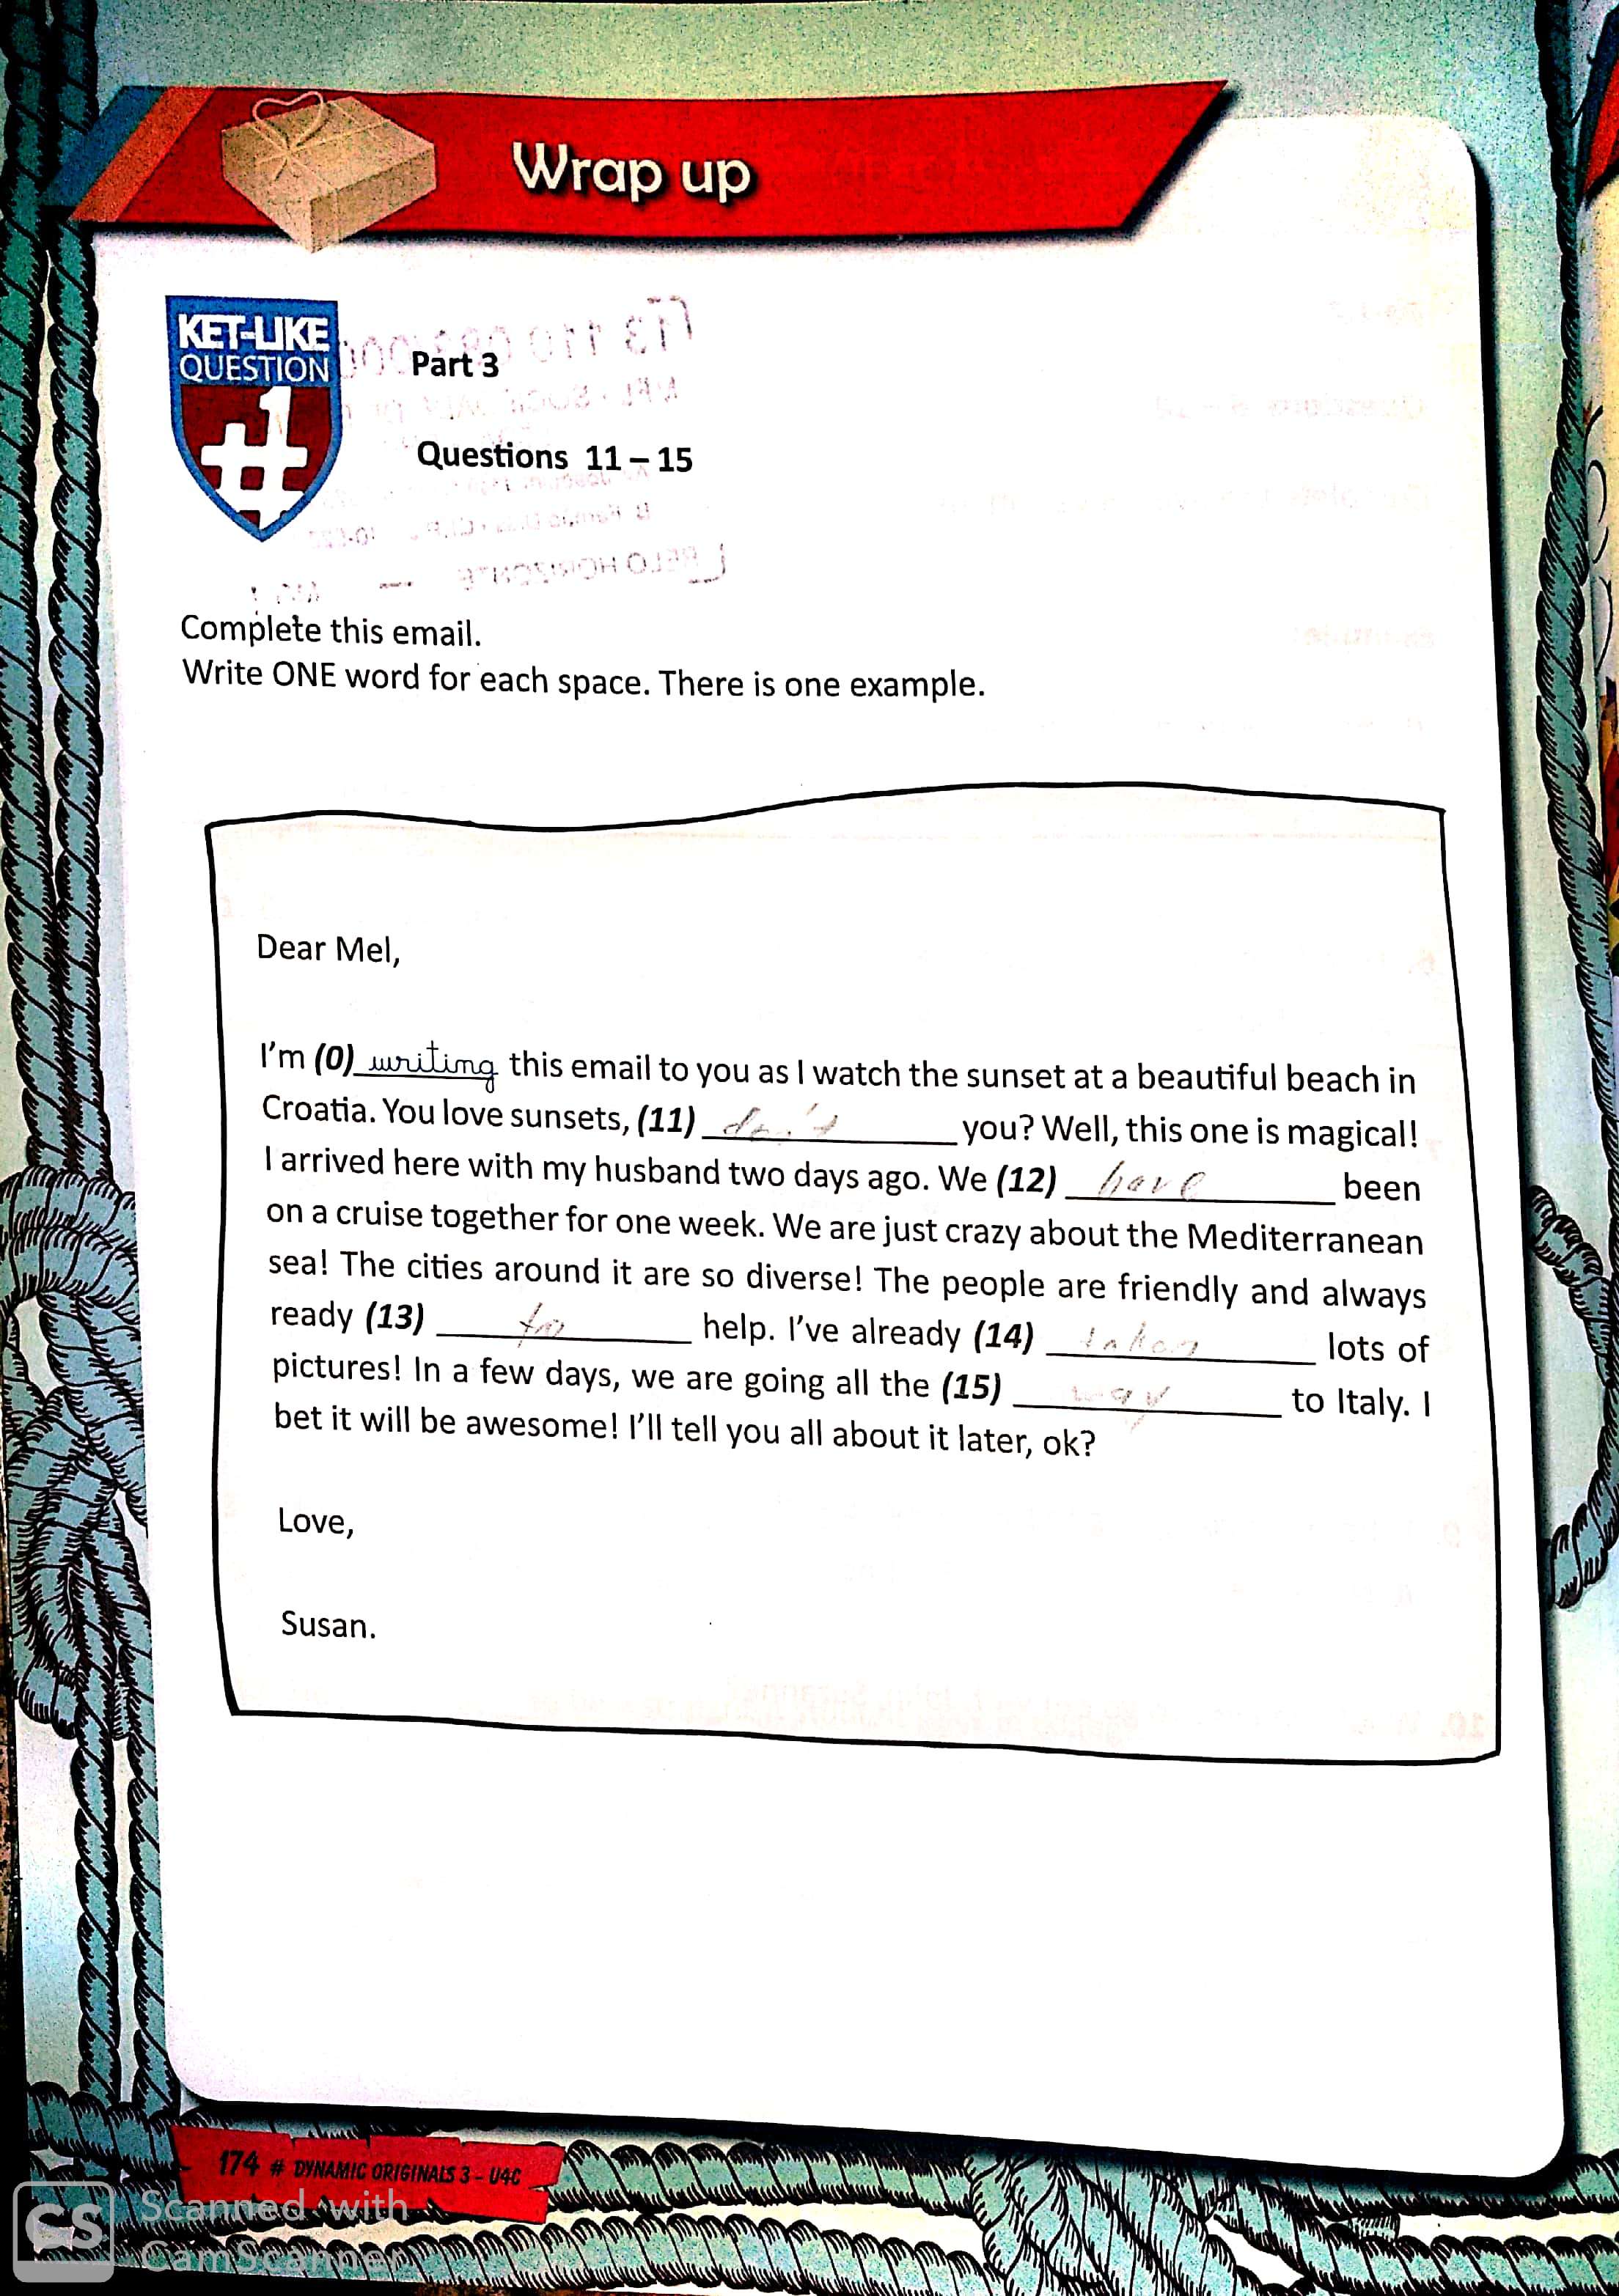 Wrap up
KET-LIKE
QUESTION
#1
Part 3
Questions 11 – 15
BELO HORIZONTE
Complete this email.
Write ONE word for each space. There is one example.
Dear Mel,
I'm (0) writing this email to you as I watch the sunset at a beautiful beach in
Croatia. You love sunsets, (11) don't you? Well, this one is magical!
I arrived here with my husband two days ago. We (12) have been
on a cruise together for one week. We are just crazy about the Mediterranean
sea! The cities around it are so diverse! The people are friendly and always
ready (13) to help. I've already (14) taken lots of
pictures! In a few days, we are going all the (15) way to Italy. I
bet it will be awesome! I'll tell you all about it later, ok?
Love,
Susan.
174 # DYNAMIC ORIGINALS 3 – U4C
CS Scanned with
CamScanner